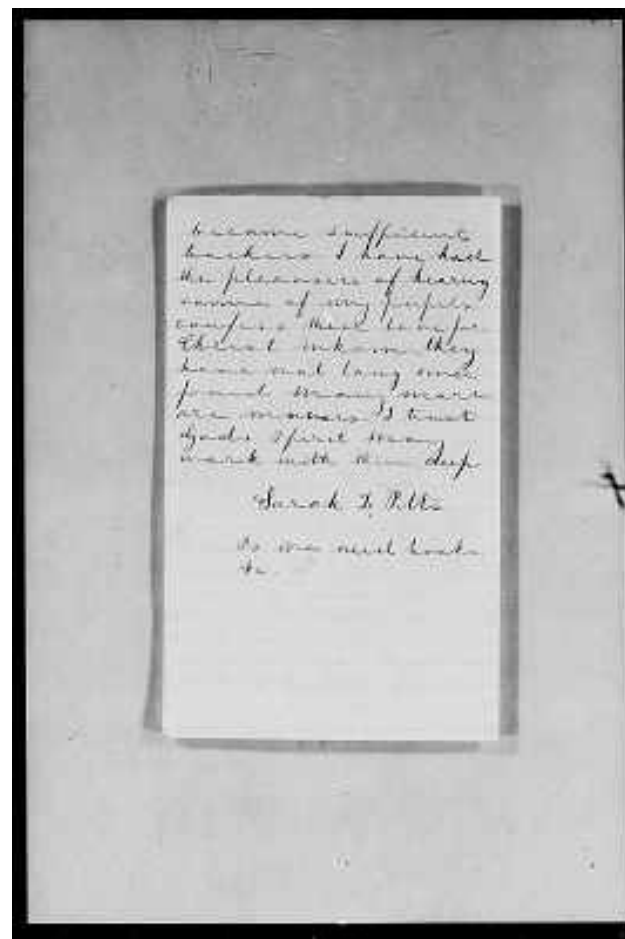 become sufficient
teachers I have had
the pleasure of hearing
some of my pupils
confess their love for
Christ whom they
have not long since
found Many more
are mourners I trust
Gods Spirit may
work with them deep
Sarah I. Pitts
we need books